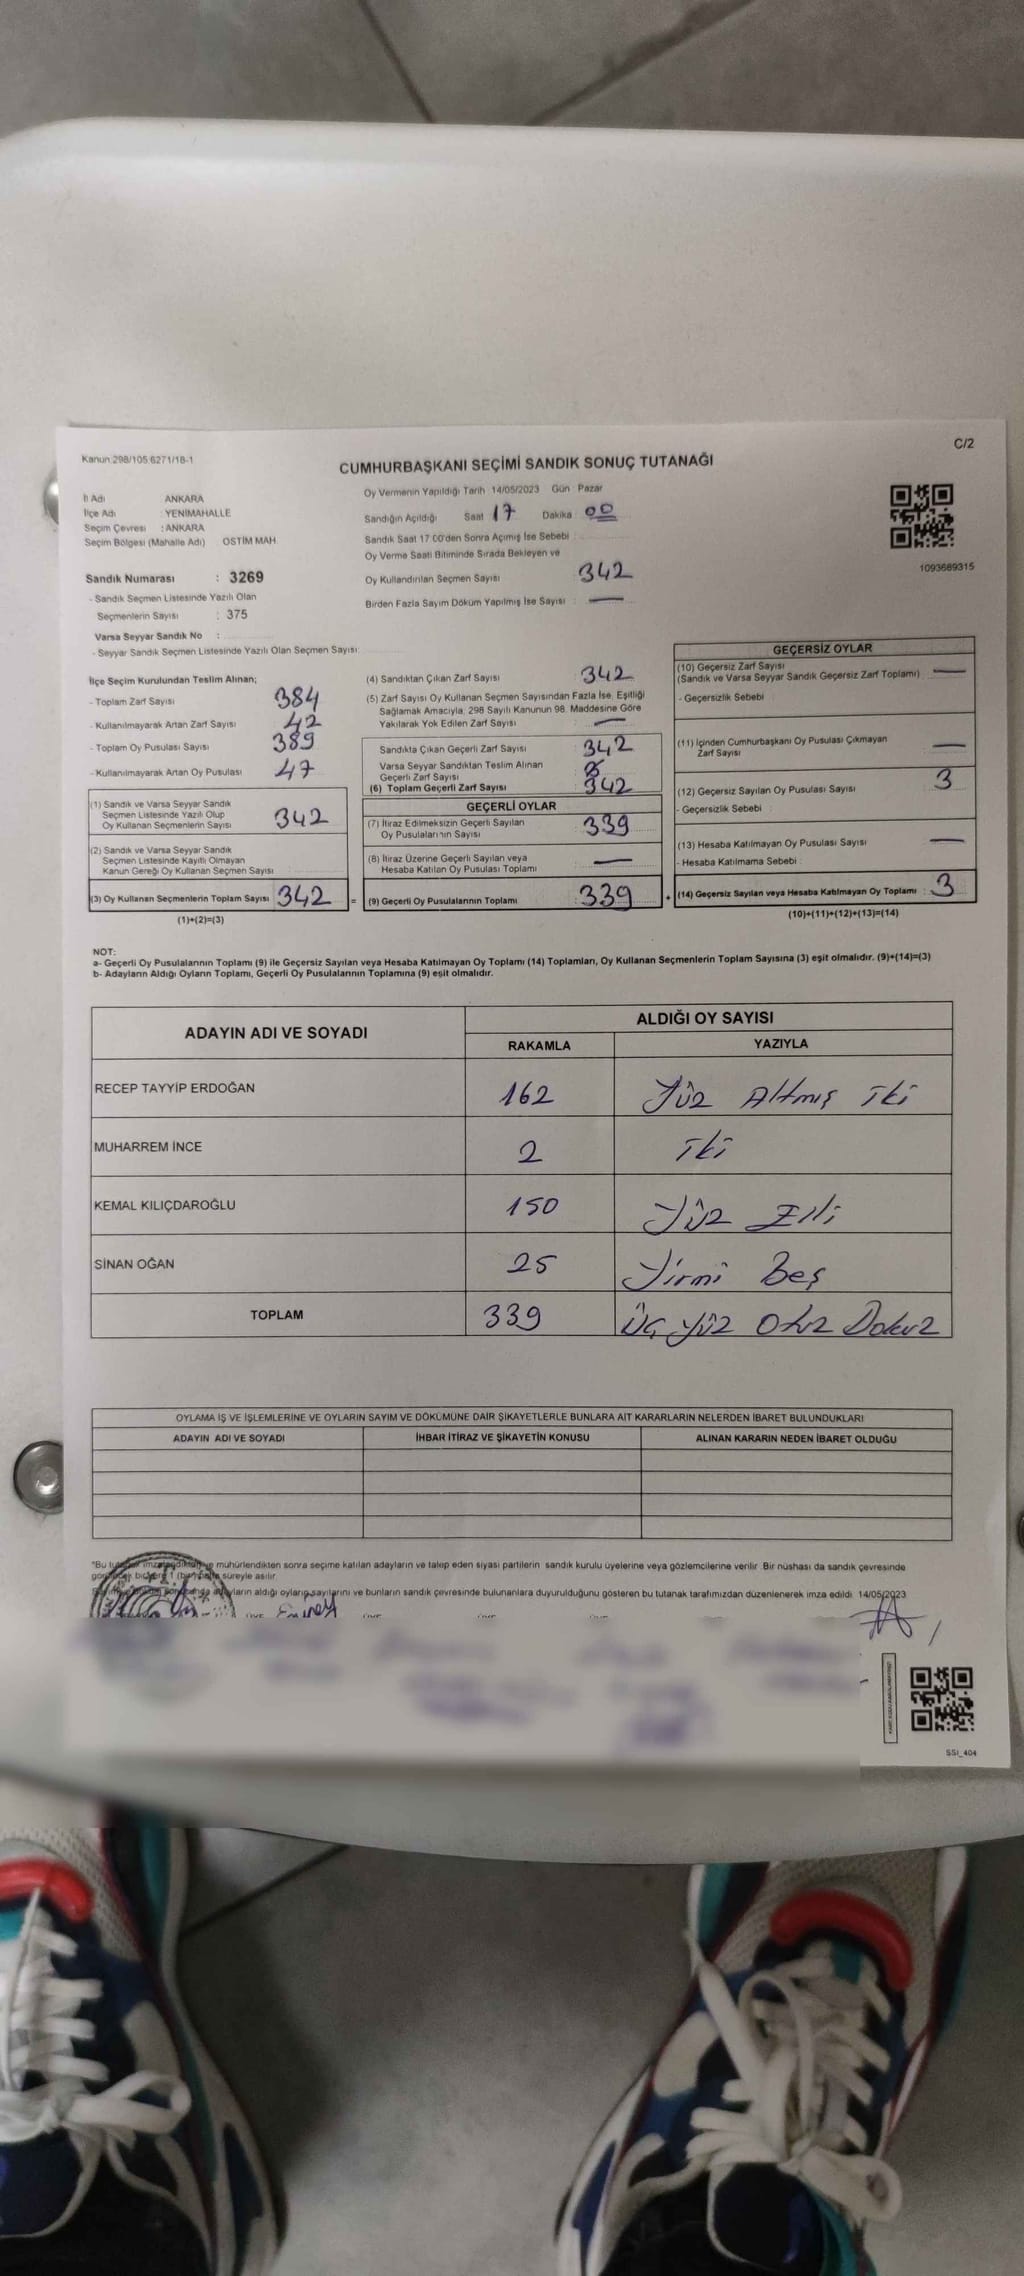 C/2
Kanun:298/105 6271/18-1
CUMHURBAŞKANI SEÇİMİ SANDIK SONUÇ TUTANAĞI
İl Adı ANKARA
İlçe Adı : YENİMAHALLE
Seçim Çevresi : ANKARA
Seçim Bölgesi (Mahalle Adı) OSTİM MAH.
Sandık Numarası : 3269
- Sandık Seçmen Listesinde Yazılı Olan
Seçmenlerin Sayısı : 375
Varsa Seyyar Sandık No :
- Seyyar Sandık Seçmen Listesinde Yazılı Olan Seçmen Sayısı:
Oy Vermenin Yapıldığı Tarih 14/05/2023 Gün : Pazar
Sandığın Açıldığı Saat 17 Dakika : 00
Sandık Saat 17:00'den Sonra Açımış İse Sebebi :
Oy Verme Saati Bitiminde Sırada Bekleyen ve
Oy Kullandırılan Seçmen Sayısı : 342
Birden Fazla Sayım Döküm Yapılmış İse Sayısı : —
1093689315
İlçe Seçim Kurulundan Teslim Alınan;
- Toplam Zarf Sayısı 384
- Kullanılmayarak Artan Zarf Sayısı 42
- Toplam Oy Pusulası Sayısı 389
- Kullanılmayarak Artan Oy Pusulası 47
(1) Sandık ve Varsa Seyyar Sandık
Seçmen Listesinde Yazılı Olup
Oy Kullanan Seçmenlerin Sayısı 342
(2) Sandık ve Varsa Seyyar Sandık
Seçmen Listesinde Kayıtlı Olmayan
Kanun Gereği Oy Kullanan Seçmen Sayısı
(3) Oy Kullanan Seçmenlerin Toplam Sayısı 342 =
(1)+(2)=(3)
(4) Sandıktan Çıkan Zarf Sayısı : 342
(5) Zarf Sayısı Oy Kullanan Seçmen Sayısından Fazla İse, Eşitliği
Sağlamak Amacıyla, 298 Sayılı Kanunun 98. Maddesine Göre
Yakılarak Yok Edilen Zarf Sayısı : —
Sandıkta Çıkan Geçerli Zarf Sayısı : 342
Varsa Seyyar Sandıktan Teslim Alınan
Geçerli Zarf Sayısı
(6) Toplam Geçerli Zarf Sayısı : 342
GEÇERLİ OYLAR
(7) İtiraz Edilmeksizin Geçerli Sayılan
Oy Pusulalarının Sayısı : 339
(8) İtiraz Üzerine Geçerli Sayılan veya
Hesaba Katılan Oy Pusulası Toplamı : —
(9) Geçerli Oy Pusulalarının Toplamı : 339 +
GEÇERSİZ OYLAR
(10) Geçersiz Zarf Sayısı
(Sandık ve Varsa Seyyar Sandık Geçersiz Zarf Toplamı) : —
- Geçersizlik Sebebi :
(11) İçinden Cumhurbaşkanı Oy Pusulası Çıkmayan
Zarf Sayısı : —
(12) Geçersiz Sayılan Oy Pusulası Sayısı : 3
- Geçersizlik Sebebi :
(13) Hesaba Katılmayan Oy Pusulası Sayısı : —
- Hesaba Katılmama Sebebi :
(14) Geçersiz Sayılan veya Hesaba Katılmayan Oy Toplamı : 3
(10)+(11)+(12)+(13)=(14)
NOT:
a- Geçerli Oy Pusulalarının Toplamı (9) ile Geçersiz Sayılan veya Hesaba Katılmayan Oy Toplamı (14) Toplamları, Oy Kullanan Seçmenlerin Toplam Sayısına (3) eşit olmalıdır. (9)+(14)=(3)
b- Adayların Aldığı Oyların Toplamı, Geçerli Oy Pusulalarının Toplamına (9) eşit olmalıdır.
ADAYIN ADI VE SOYADI
ALDIĞI OY SAYISI
RAKAMLA YAZIYLA
RECEP TAYYİP ERDOĞAN 162 Yüz Altmış iki
MUHARREM İNCE 2 iki
KEMAL KILIÇDAROĞLU 150 Yüz Elli
SİNAN OĞAN 25 Yirmi Beş
TOPLAM 339 Üç Yüz Otuz Dokuz
OYLAMA İŞ VE İŞLEMLERİNE VE OYLARIN SAYIM VE DÖKÜMÜNE DAİR ŞİKAYETLERLE BUNLARA AİT KARARLARIN NELERDEN İBARET BULUNDUKLARI
ADAYIN ADI VE SOYADI İHBAR İTİRAZ VE ŞİKAYETİN KONUSU ALINAN KARARIN NEDEN İBARET OLDUĞU
"Bu mühürlendikten sonra seçime katılan adayların ve talep eden siyasi partilerin sandık kurulu üyelerine veya gözlemcilerine verilir. Bir nüshası da sandık çevresinde
süreyle asılır.
adayların aldığı oyların sayılarını ve bunların sandık çevresinde bulunanlara duyurulduğunu gösteren bu tutanak tarafımızdan düzenlenerek imza edildi. 14/05/2023
SSI_404